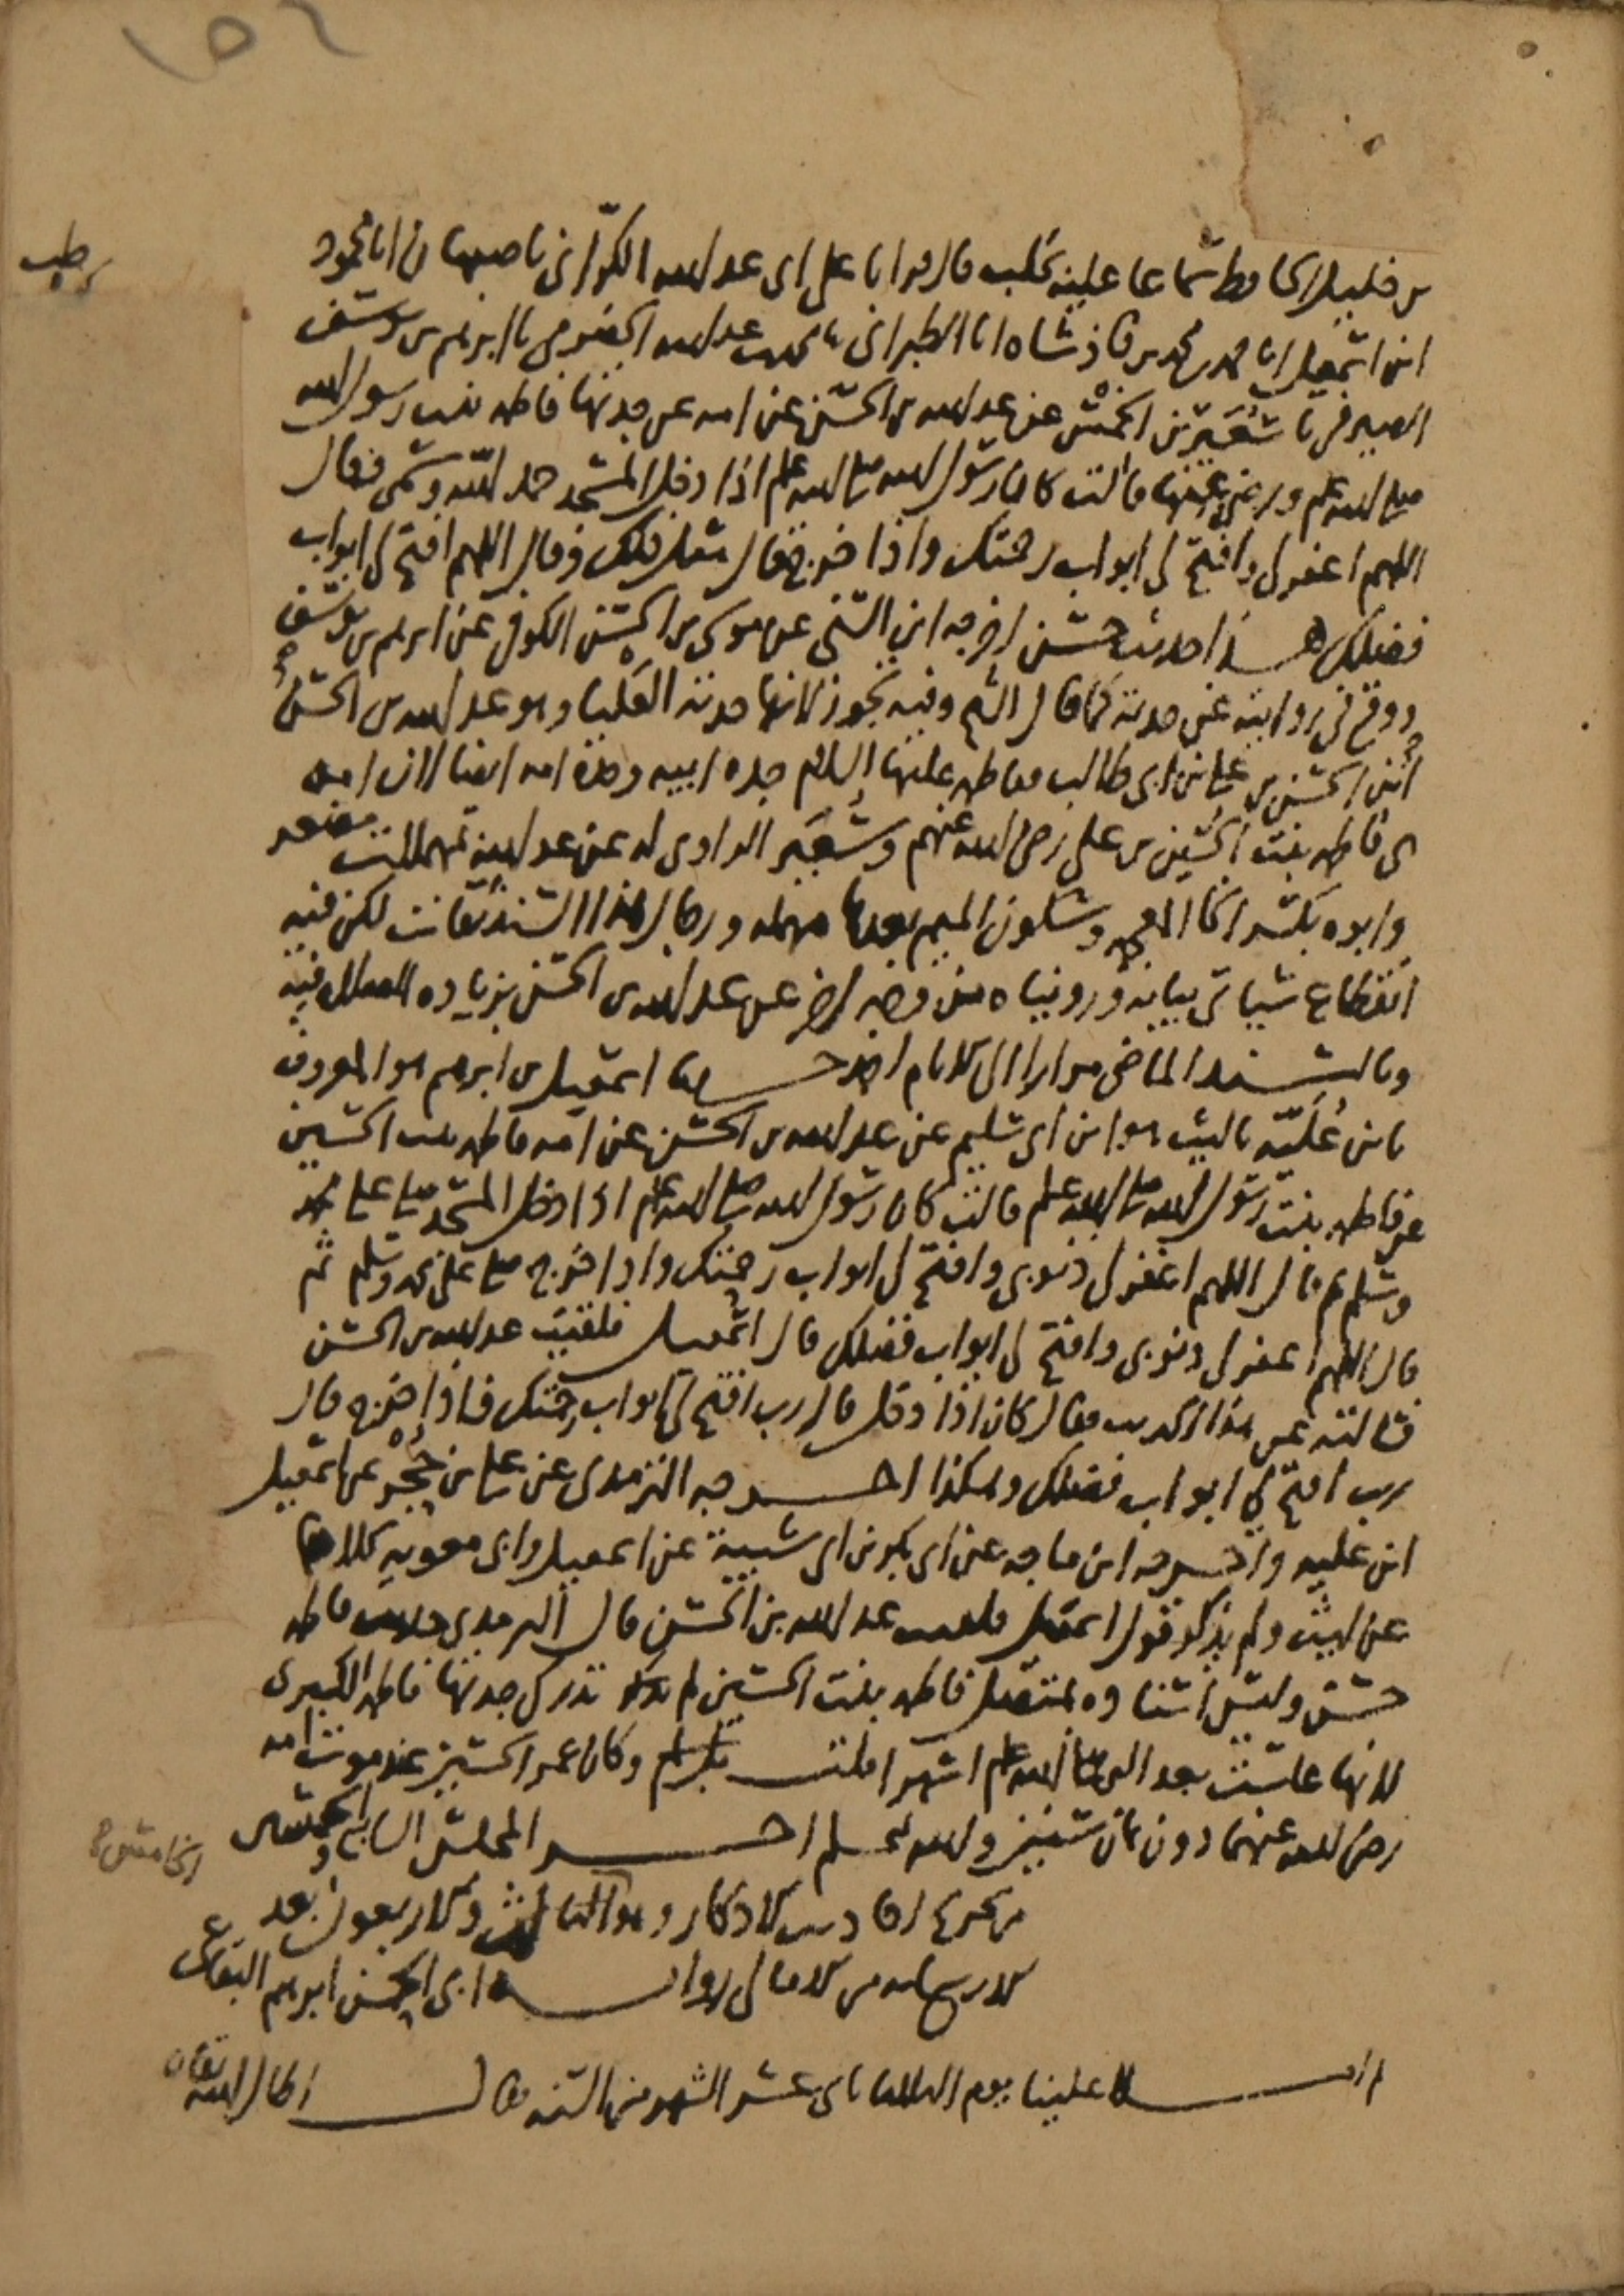 ١٥٢
بن خليل الحافظ سماعا عليه بحلب قال قرانا على ابي عبد الله الكراني باصبهان انا محمود
ابن اسمعيل انا محمد بن محمد بن فاذشاه انا الطبراني ثنا محمد بن عبد الله الحضرمي ثنا ابرهيم بن يوسف
الصيرفي ثنا سعير بن الخمس عن عبد الله بن الحسن عن امه عن جدتها فاطمه بنت رسول الله
صلى الله عليه وسلم ورضي عنها قالت كان رسول الله صلى الله عليه وسلم اذا دخل المسجد حمد الله وسمى وقال
اللهم اغفر لي وافتح لي ابواب رحمتك واذا خرج قال مثل ذلك وقال اللهم افتح لي ابواب
فضلك هذا حديث حسن اخرجه ابن السني عن موسى بن الحسن الكوفي عن ابرهيم بن يوسف
ووقع في روايته عن جدته كما قال الشيخ وفيه تجوز لانها جدته العليا وهو عبد الله بن الحسن
ابن الحسن بن علي بن ابي طالب وفاطمه عليها السلام جده ابيه وجدة امه ايضا لان امه
هي فاطمه بنت الحسين بن علي رضي الله عنهم وسعير الراوي له عن عبد الله بمهملتين مصغر
وابوه بكسر الخا المعجمه وسكون الميم بعدها مهمله ورجال هذا السند ثقات لكن فيه
انقطاع سياتي بيانه ورويناه من وجه اخر عن عبد الله بن الحسن بزياده الصلاه فيه
وبالسند الماضي مرارا الى الامام احمد حدثنا اسمعيل بن ابرهيم هو المعروف
بابن علية ثنا ليث هو ابن ابي سليم عن عبد الله بن الحسن عن امه فاطمه بنت الحسين
عن فاطمه بنت رسول الله صلى الله عليه وسلم قالت كان رسول الله صلى الله عليه وسلم اذا دخل المسجد صلى على محمد
وسلم ثم قال اللهم اغفر لي ذنوبي وافتح لي ابواب رحمتك واذا خرج صلى على محمد وسلم ثم
قال اللهم اغفر لي ذنوبي وافتح لي ابواب فضلك قال اسمعيل فلقيت عبد الله بن الحسن
فسالته عن هذا الحديث فقال كان اذا دخل قال رب افتح لي ابواب رحمتك فاذا خرج قال
رب افتح لي ابواب فضلك وهكذا اخرجه الترمذي عن علي بن حجر عن اسمعيل
ابن عليه واخرجه ابن ماجه عن ابي بكر بن ابي شيبة عن اسمعيل وابي معويه كلاهما
عن ليث ولم يذكر قول اسمعيل فلقيت عبد الله بن الحسن قال الترمذي حديث فاطمه
حسن وليس اسناده بمتصل فاطمه بنت الحسين لم تدرك جدتها فاطمه الكبرى
لانها عاشت بعد النبي صلى الله عليه وسلم اشهرا قلت وكان عمر الحسين عند موت امه
رضي الله عنهما دون ثمان سنين والله اعلم اخر المجلس السابع والخمسين
الخامس
من تخريج احاديث الاذكار وهو الثالث والاربعون بعد
الاربعمايه من الامالي رواية ابي الحسن ابرهيم البقاعي
ثم املا علينا يوم الثلاثا ثاني عشر الشهر من السنه قال اطال الله بقاه